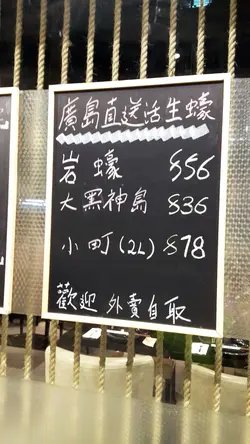 廣島直送活生蠔
岩蠔 $56
大黑神島 $36
小町(2L) $78
歡迎 外賣自取